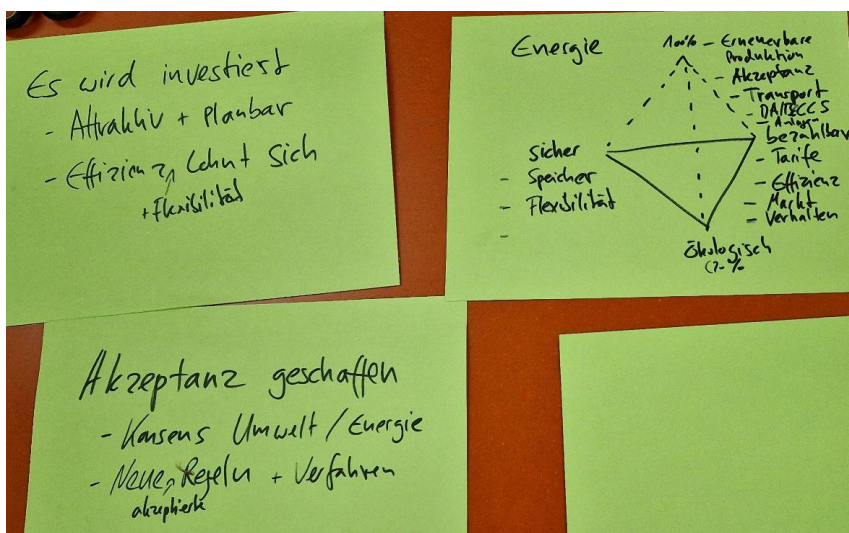 Es wird investiert
- Attraktiv + Planbar
- Effizienz, lohnt sich
+ Flexibilität
Energie
100% - Erneuerbare
Produktion
- Akzeptanz
- Transport
- Anlagen
bezahlbar
- Tarife
- Effizienz
- Markt
- Verhalten
sicher
- Speicher
- Flexibilität
-
Ökologisch
Akzeptanz geschaffen
- Konsens Umwelt / Energie
- Neue Regeln + Verfahren
akzeptierte